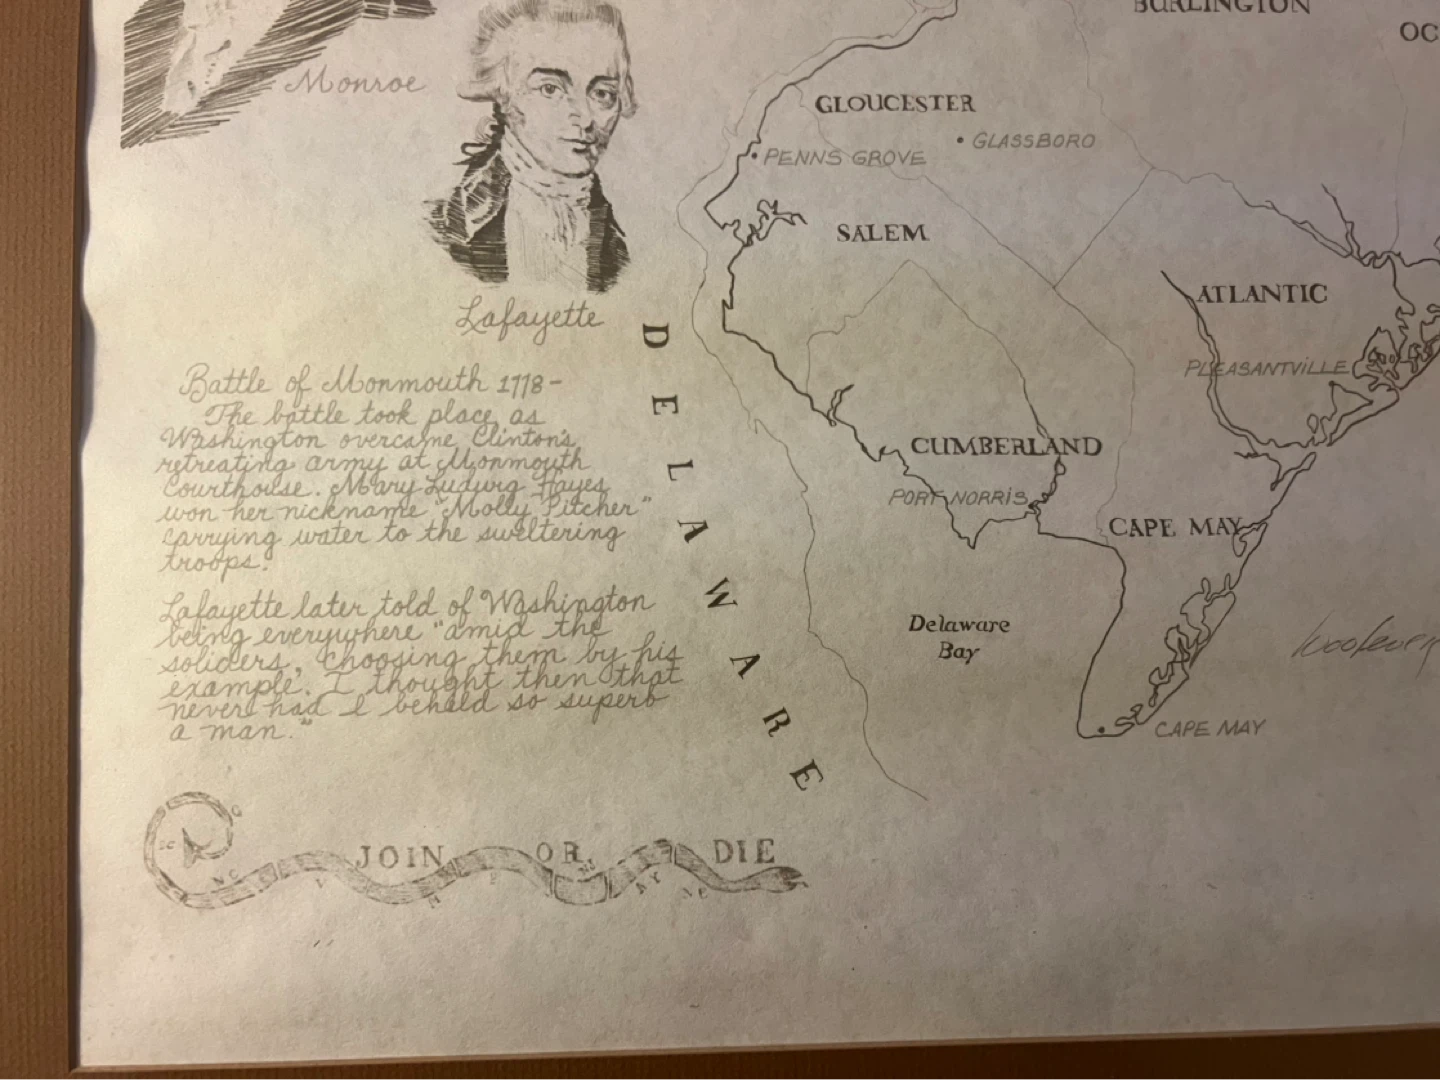 BURLINGTON
OC
Monroe
GLOUCESTER
GLASSBORO
PENNS GROVE
SALEM
ATLANTIC
Lafayette
PLEASANTVILLE
DELAWARE
Battle of Monmouth 1778-
The battle took place as
Washington overcame Clinton's
retreating army at Monmouth
Courthouse. Mary Ludwig Hayes
won her nickname "Molly Pitcher"
carrying water to the sweltering
troops.
CUMBERLAND
PORT NORRIS
CAPE MAY
Lafayette later told of Washington
being everywhere "amid the
soliders, choosing them by his
example. I thought then that
never had I behald so superb
a man."
Delaware
Bay
CAPE MAY
JOIN OR DIE
SC
NC
V
M
P
NJ
NY
NE